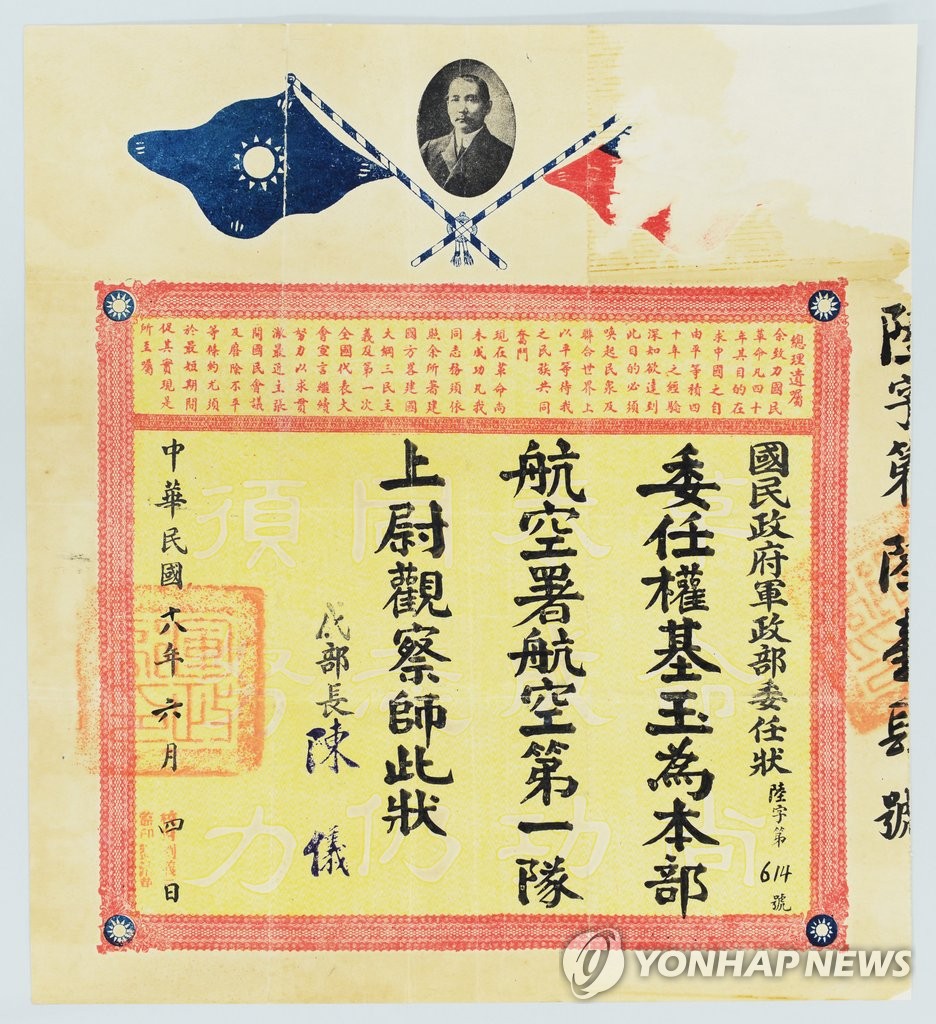 總理遺囑
余致力國民
革命凡四十
年其目的在
求中國之自
由平等積四
十年之經驗
深知欲達到
此目的必須
喚起民衆及
聯合世界上
以平等待我
之民族共同
奮鬥
現在革命尚
未成功凡我
同志務須依
照余所著建
國方畧建國
大綱三民主
義及第一次
全國代表大
會宣言繼續
努力以求貫
澈最近主張
開國民會議
及廢除不平
等條約尤須
於最短期間
促其實現是
所至囑
陸字第陸壹肆號
國民政府軍政部委任狀 陸字第614號
委任權基玉為本部
航空署航空第一隊
上尉觀察師此狀
代部長 陳儀
中華民國十八年六月四日
革命尚
未成功
同志仍
須努力
YONHAP NEWS